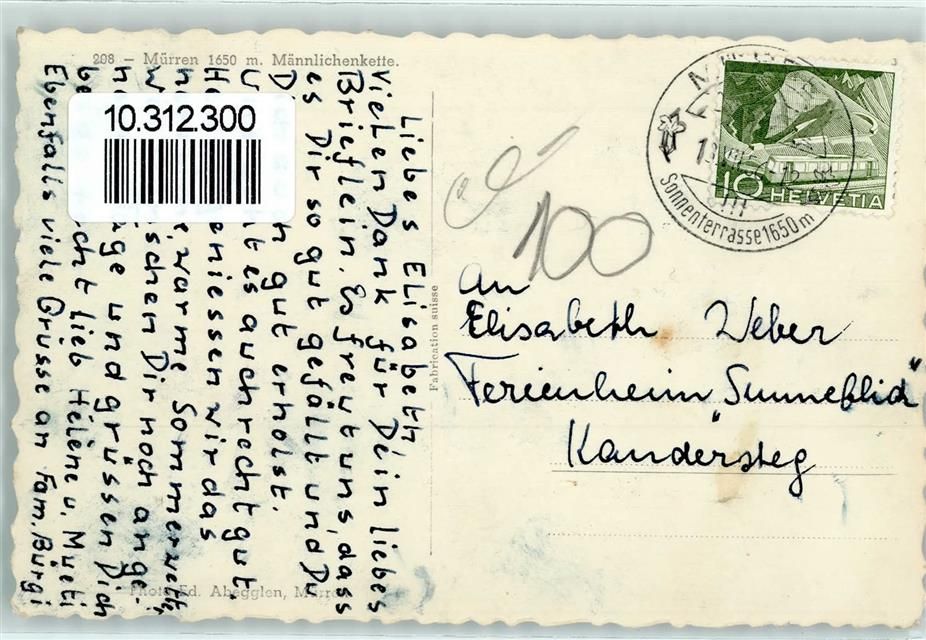 208 – Mürren 1650 m. Männlichenkette.
10.312.300
Liebes Elisabeth
Vielen Dank für Dein liebes
Brieflein. Es freut uns, dass
es Dir so gut gefällt und Du
gut erholst.
es auch recht gut.
geniessen wir das
warme Sommerwetter
schen Dir noch ange-
ge und grüssen Dich
cht lieb Hélène u. Müeti
Ebenfalls viele Grüsse an Fam. Bürgi
Photo Ed. Abegglen, Mürren
Fabrication suisse
Sonnenterrasse 1650 m
10 HELVETIA
100
An
Elisabeth Weber
Ferienheim "Sunneblick"
Kandersteg